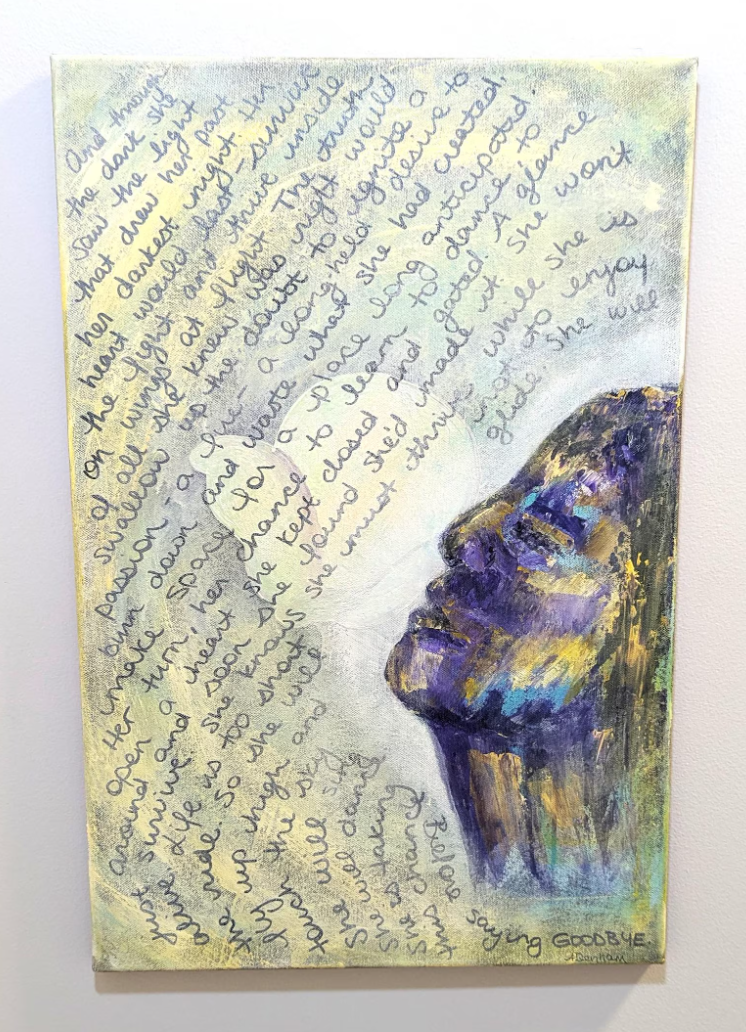 And through
the dark she
saw the light
that drew her past
her darkest night. Her
heart would last - survive
on the fight and thrive inside
of all wings at flight. The truth
she knew was right would
swallow up the doubt to ignite a
passion - a fire - a longheld desire to
burn down and waste what she had created,
make space for a place long anticipated.
Her turn, her chance to learn to dance to
open a heart she kept closed and gated. A glance
around and soon she found she'd made it. She won't
just survive she knows she must thrive while she is
alive. Life is too short not to enjoy
the ride. So she will glide. She will
fly up high and
touch the sky
she will sing
she will dance
she is taking
this chance
Before
saying GOODBYE.